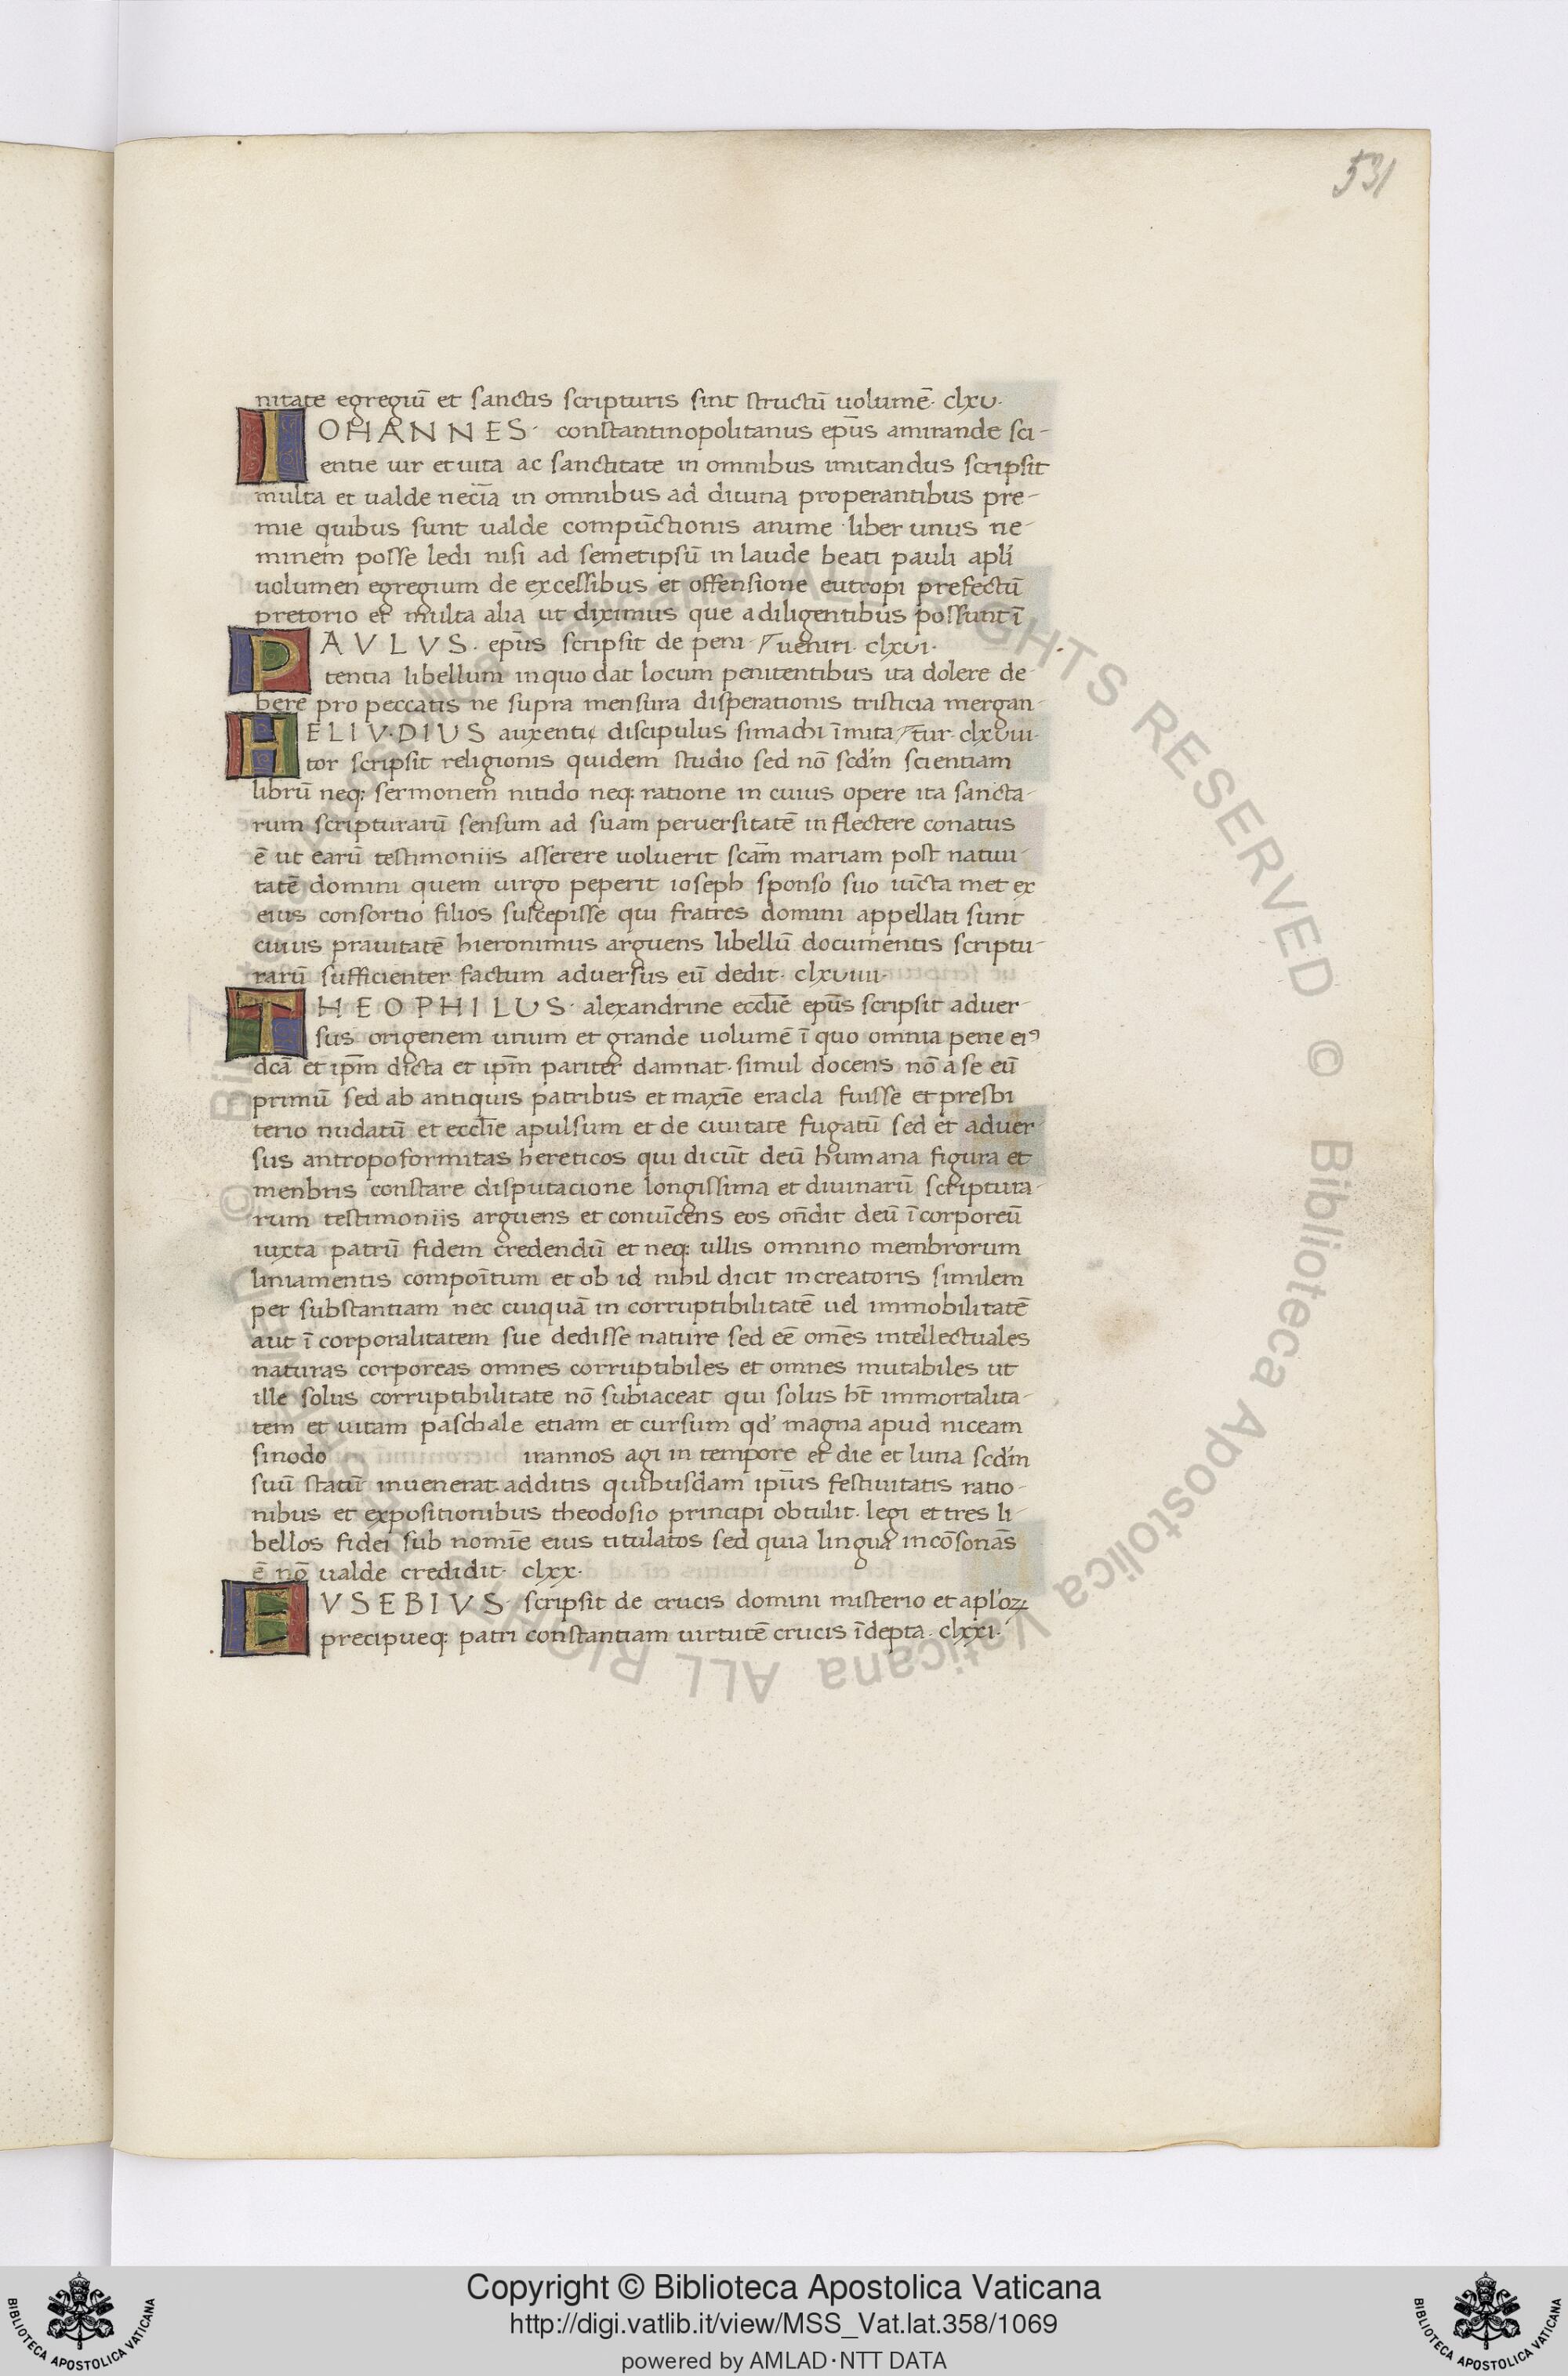 531
nitate egregiū et sanctis scripturis sint structū uolumē· clxv·
IOHANNES· constantinopolitanus ep̄us amirande sci-
entie uir et uita ac sanctitate in omnibus imitandus scripsit
multa et ualde nec̄ia in omnibus ad diuina properantibus pre-
mie quibus sunt ualde compūctionis anime liber unus ne-
minem posse ledi nisi ad semetipsū in laude beati pauli apl̄i
uolumen egregium de excessibus et offensione eutropi prefectū
pretorio et multa alia ut diximus que a diligentibus possunt ī
PAVLVS· ep̄us scripsit de peni- ueniri· clxvi·
tentia libellum in quo dat locum penitentibus ita dolere de-
bere pro peccatis ne supra mensura disperationis tristicia mergan-
HELIV·DIVS auxentię discipulus simachi īmita- tur· clxviii·
tor scripsit religionis quidem studio sed nō scd́m scientiam
librū neq: sermonem nitido neq: ratione in cuius opere ita sancta-
rum scripturarū sensum ad suam peruersitatē inflectere conatus
ē ut earū testimoniis asserere uoluerit scām mariam post natiui-
tatē domini quem uirgo peperit ioseph sponso suo iūcta met ex
eius consortio filios suscepisse qui fratres domini appellati sunt
cuius prauitatē hieronimus arguens libellū documentis scriptu-
rarū sufficienter factum aduersus eū dedit· clxviiii·
THEOPHILUS· alexandrine eccl̄ie ep̄us scripsit aduer-
sus origenem unum et grande uolumē ī quo omnia pene eiꝰ
dcā et ip̄m dicta et ip̄m pariter damnat· simul docens nō a se eū
primū sed ab antiquis patribus et maxīe eracla fuisse et presbi
terio nudatū et eccl̄ie apulsum et de ciuitate fugatū sed et aduer
sus antropoformitas hereticos qui dicūt deū humana figura et
menbris constare disputacione longissima et diuinarū scriptura-
rum testimoniis arguens et conuīcens eos on̄dit deū īcorporeū
iuxta patrū fidem credendū et neq: ullis omnino membrorum
liniamentis compoītum et ob id nihil dicit in creatoris similem
per substantiam nec cuiquā in corruptibilitatē uel immobilitatē
aut ī corporalitatem sue dedisse nature sed eē omēs intellectuales
naturas corporeas omnes corruptibiles et omnes mutabiles ut
ille solus corruptibilitate nō subiaceat qui solus ht̄ immortalita-
tem et uitam paschale etiam et cursum qd' magna apud niceam
sinodo irannos agi in tempore et die et luna scd́m
suū statū inuenerat additis quibusdam ip̄ius festiuitatis ratio-
nibus et expositionibus theodosio principi obtulit· legi et tres li-
bellos fidei sub nomīe eius titulatos sed quia lingua incōsonās
ē nō ualde credidit· clxx·
EVSEBIVS· scripsit de crucis domini misterio et apl̄oꝝ
precipueq: patri constantiam uirtutē crucis īdepta· clxxi·
© Biblioteca Apostolica Vaticana ALL RIGHTS RESERVED
Copyright © Biblioteca Apostolica Vaticana
http://digi.vatlib.it/view/MSS_Vat.lat.358/1069
powered by AMLAD·NTT DATA
BIBLIOTECA APOSTOLICA VATICANA
BIBLIOTECA APOSTOLICA VATICANA